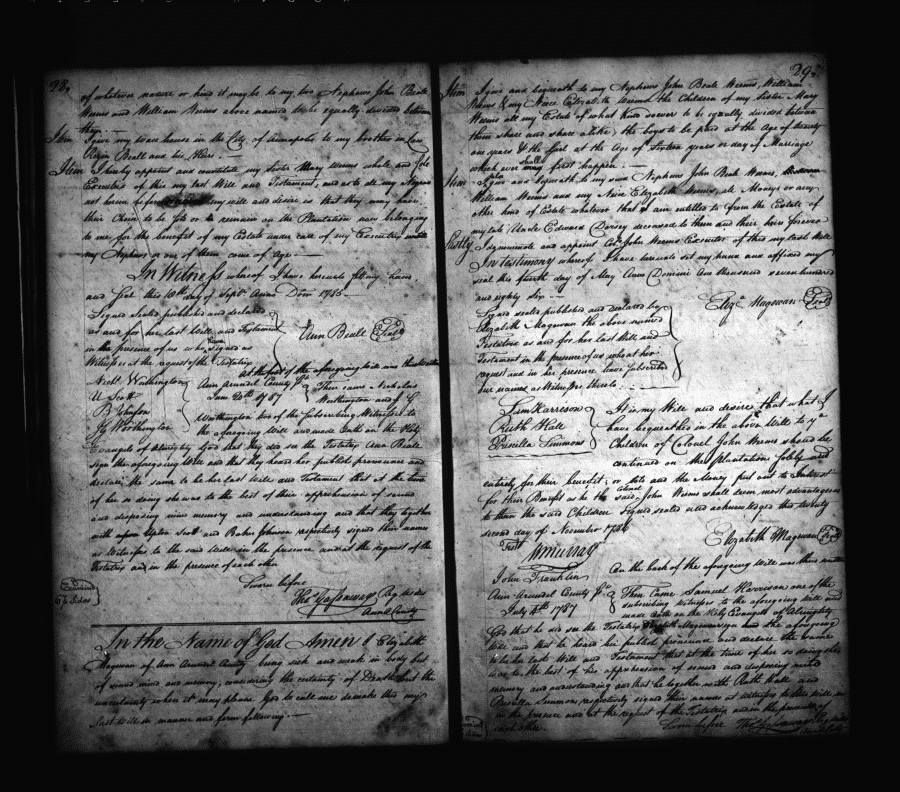 28,
of whatever nature or kind it may be to my two Nephews John Beale
Weems and William Weems above named to be equally divided between
them. —
Item I give my ware house in the City of Annapolis to my brother in Law
Rezin Beall and his Heirs. —
Item I hereby appoint and constitute my Sister Mary Weems whole and Sole
Executrix of this my last Will and Testament, and as to all my Negroes
not herein before my will and desire is that they may have
their Choice to be or to remain on the Plantation now belonging
to me for the benefit of my Estate under care of my Executrix until
my Nephews or one of them come of Age. —
In Witness whereof I have hereunto set my hand
and Seal this 10th day of Septr. Anno Dom 1785.
Signed Sealed published and declared
as and for her last Will and Testament
in the presence of us who Signed as
Witnesses at the request of the Testatrix
Ann Beall Seal
at the foot of the aforegoing will was thus written
Nichs. Worthington
U Scott
B Johnson
JG Worthington
Ann Arundel County Sc.
June 20th 1787
Then came Nicholas
Worthington and J G
Worthington two of the Subscribing Witnesses to
the aforegoing will and made Oath on the Holy
Evangels of Almighty God that they did see the Testatrix Ann Beall
sign the aforegoing Will and that they heard her publish pronounce and
declare the same to be her last Will and Testament that at the time
of her so doing she was to the best of their apprehension of sound
and disposing mind memory and understanding and that they together
with Upton Scott and Baker Johnson respectively signed their names
as Witnesses to the said Will in the presence and at the request of the
Testatrix and in the presence of each other
Sworn before
Thos. Gassaway Reg Wills
Annl. County
Examined
6 Sides
In the Name of God Amen I Elizabeth
Magowan of Ann Arundel County being sick and weak in body but
of sound mind and memory, considering the certainty of Death and the
uncertainty when it may please God to call me do make this my
Last Will in manner and form following. —
29,
Item I give and bequeath to my Nephews John Beale Weems, William
Weems & my Niece Elizabeth Weems the Children of my Sister Mary
Weems all my Estate of what kind soever to be equally divided between
them share and share alike, the boys to be paid at the Age of twenty
one years & the Girl at the Age of Sixteen years or day of Marriage
which ever shall first happen. —
Item I also give and bequeath to my said Nephews John Beale Weems,
William Weems and my Niece Elizabeth Weems, all Moneys or any
other kind of Estate whatever that I am entitled to from the Estate of
my late Uncle Edward Dorsey deceased to them and their heirs forever
Lastly I do nominate and appoint Colo. John Weems Executor of this my last Will
In testimony whereof I have hereunto set my hand and affixed my
seal this fourth day of May Anno Domini One thousand seven hundred
and eighty six —
Signed sealed published and declared by
Elizabeth Magowan the above named
Testatrix as and for her last Will and
Testament in the presence of us who at her
request and in her presence have subscribed
our names as Witnesses thereto
Elizth. Magowan Seal
Sam Harrison
Ruth Hall
Priscilla Simmons
It is my Will and desire that what I
have bequeathed in the above Will to ye
Children of Colonel John Weems should be
continued on the plantation solely and
entirely for their benefit; or sold and the Money put out to Interest
for their Benefit as he the said Colonel John Weems shall deem most advantageous
to them the said Children Signed sealed and acknowledged this twenty
second day of November 1786
Test
W Murray
John Franklin
Elizabeth Magowan Seal
On the back of the aforegoing will was thus written
Ann Arundel County Sc.
July 4th 1787
Then Came Samuel Harrison one of the
subscribing witnesses to the aforegoing will and
made oath on the Holy Evangels of Almighty
God that he did see the Testatrix Elizabeth Magowan sign the aforegoing
Will and that he heard her publish pronounce and declare the same
to be her last Will and Testament that at the time of her so doing she
was to the best of his apprehension of sound and disposing mind
memory and understanding and that he together with Ruth Hall and
Priscilla Simmons respectively signed their names as witnesses to this will
in the presence and at the request of the Testatrix and in the presence of
each other.
Sworn before Thos. Gassaway Reg Wills